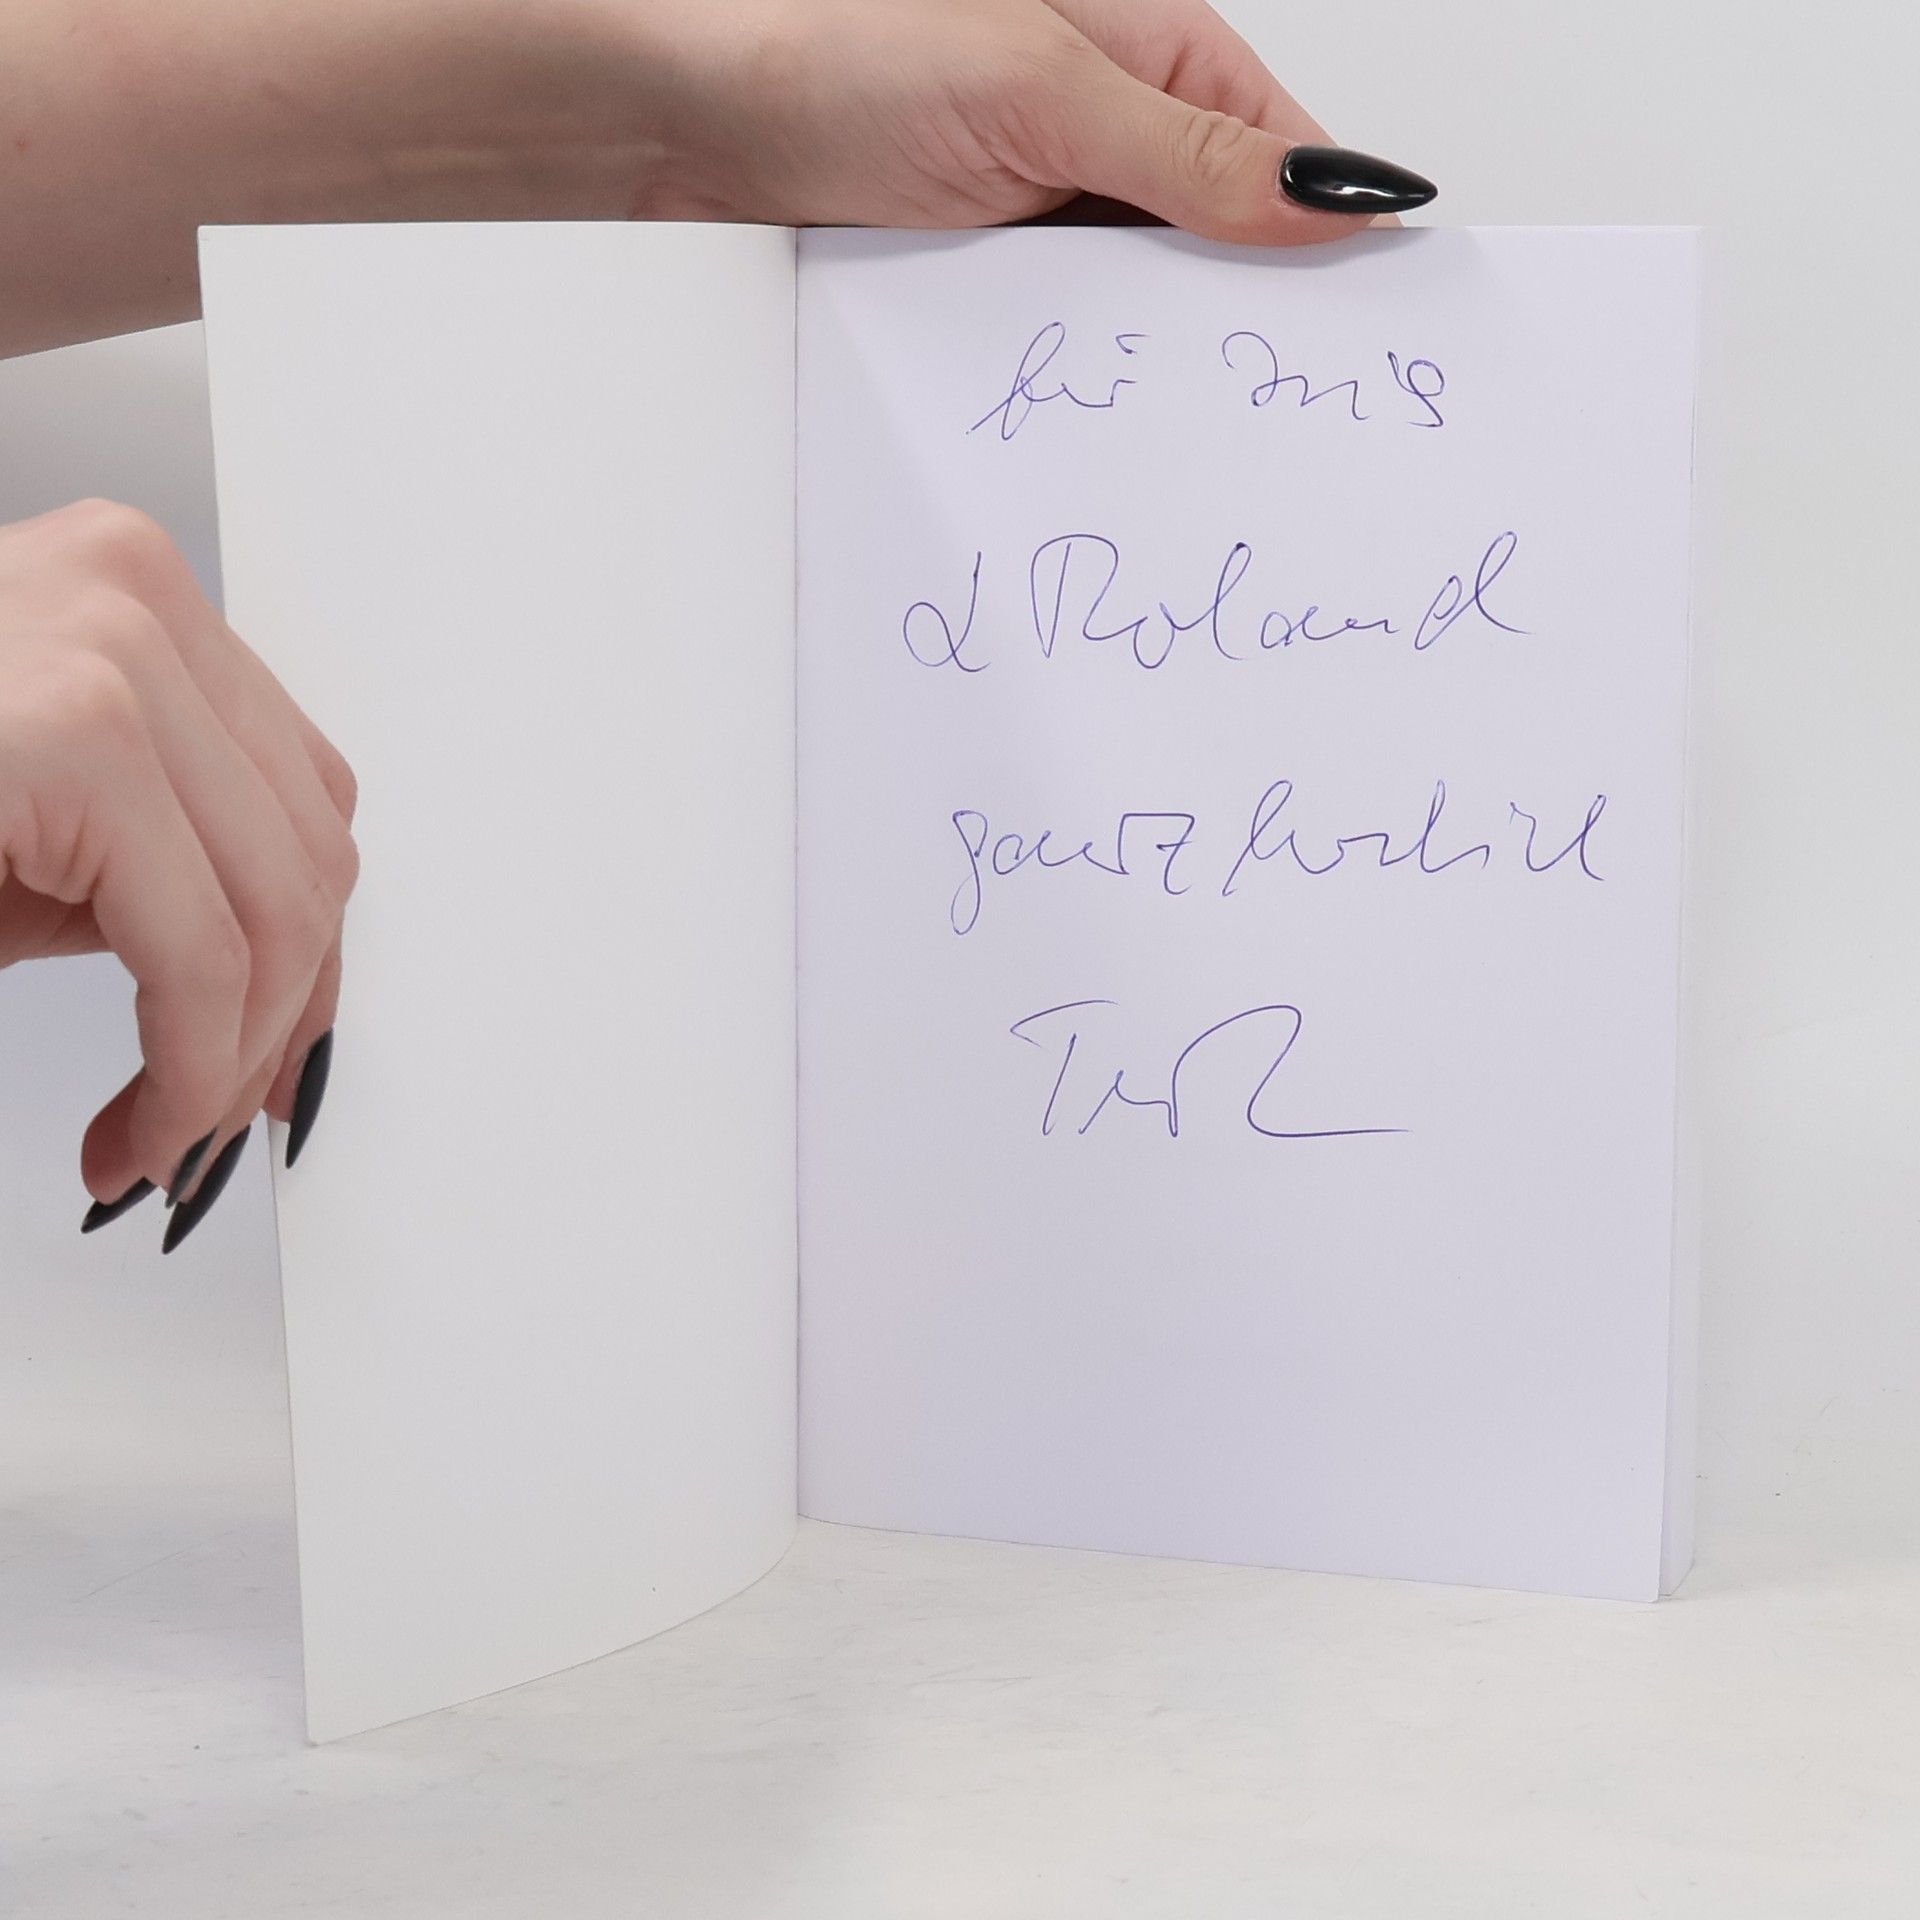 für Iris
& Roland
ganz herzlich